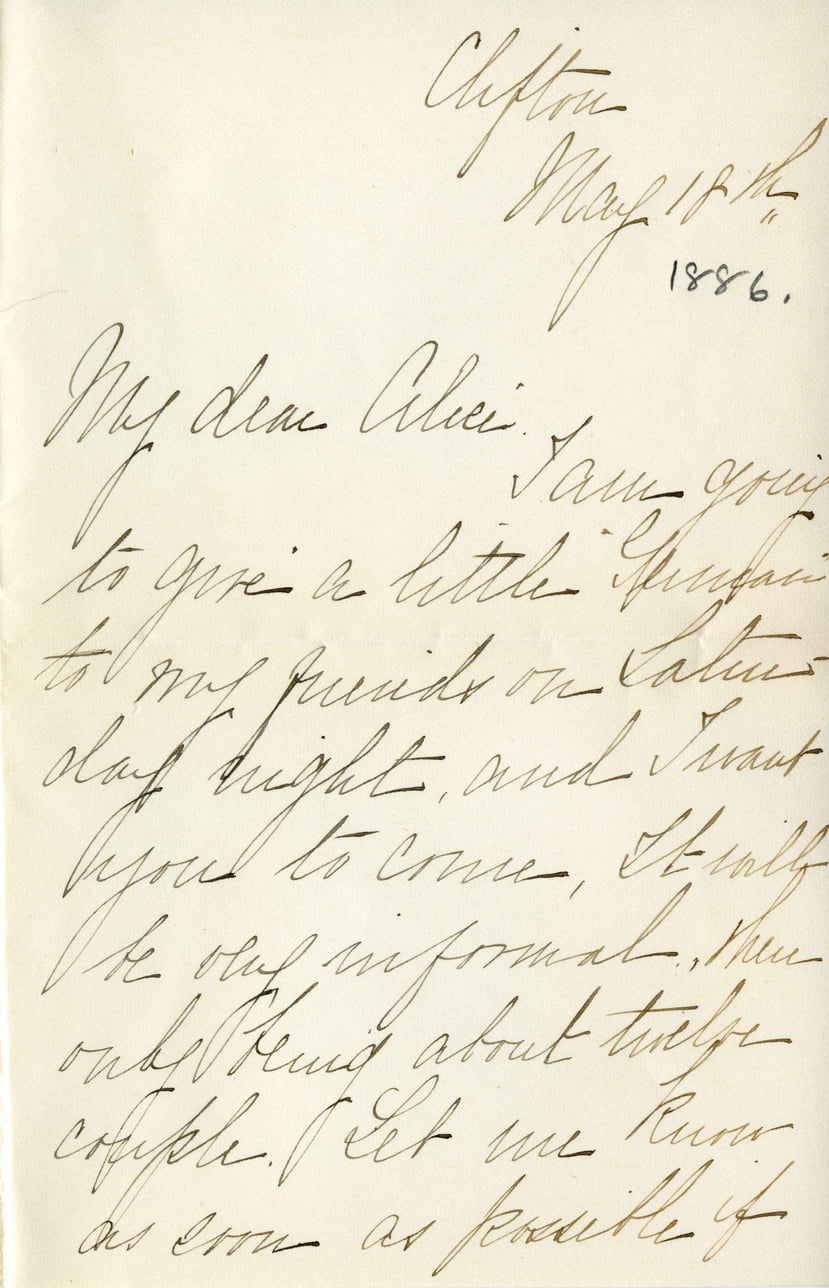 Clifton
May 18th
1886.
My dear Alice.
I am going
to give a little German
to my friends on Satur-
day night, and I want
you to come, It will
be very informal, there
only being about twelve
couple. Let me know
as soon as possible if